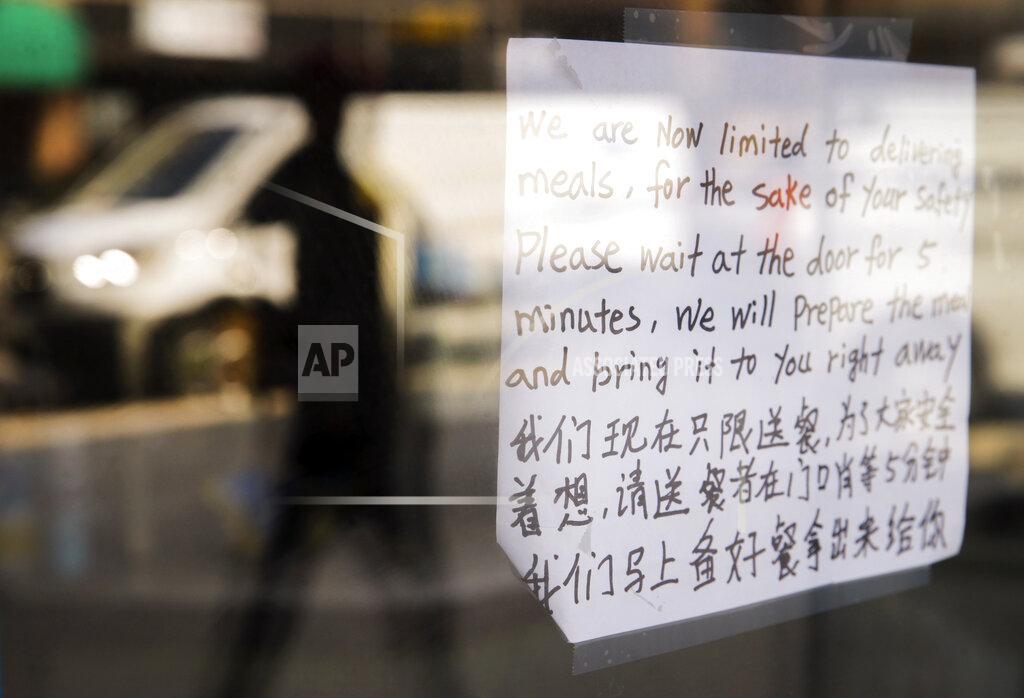 We are Now limited to delivering
meals, for the sake of your safety
Please wait at the door for 5
minutes, We will Prepare the mea
and bring it to You right away
我们现在只限送餐,为了大家安全
着想,请送餐者在门口肖等5分钟
我们马上备好餐拿出来给你
AP
ASSOCIATED PRESS